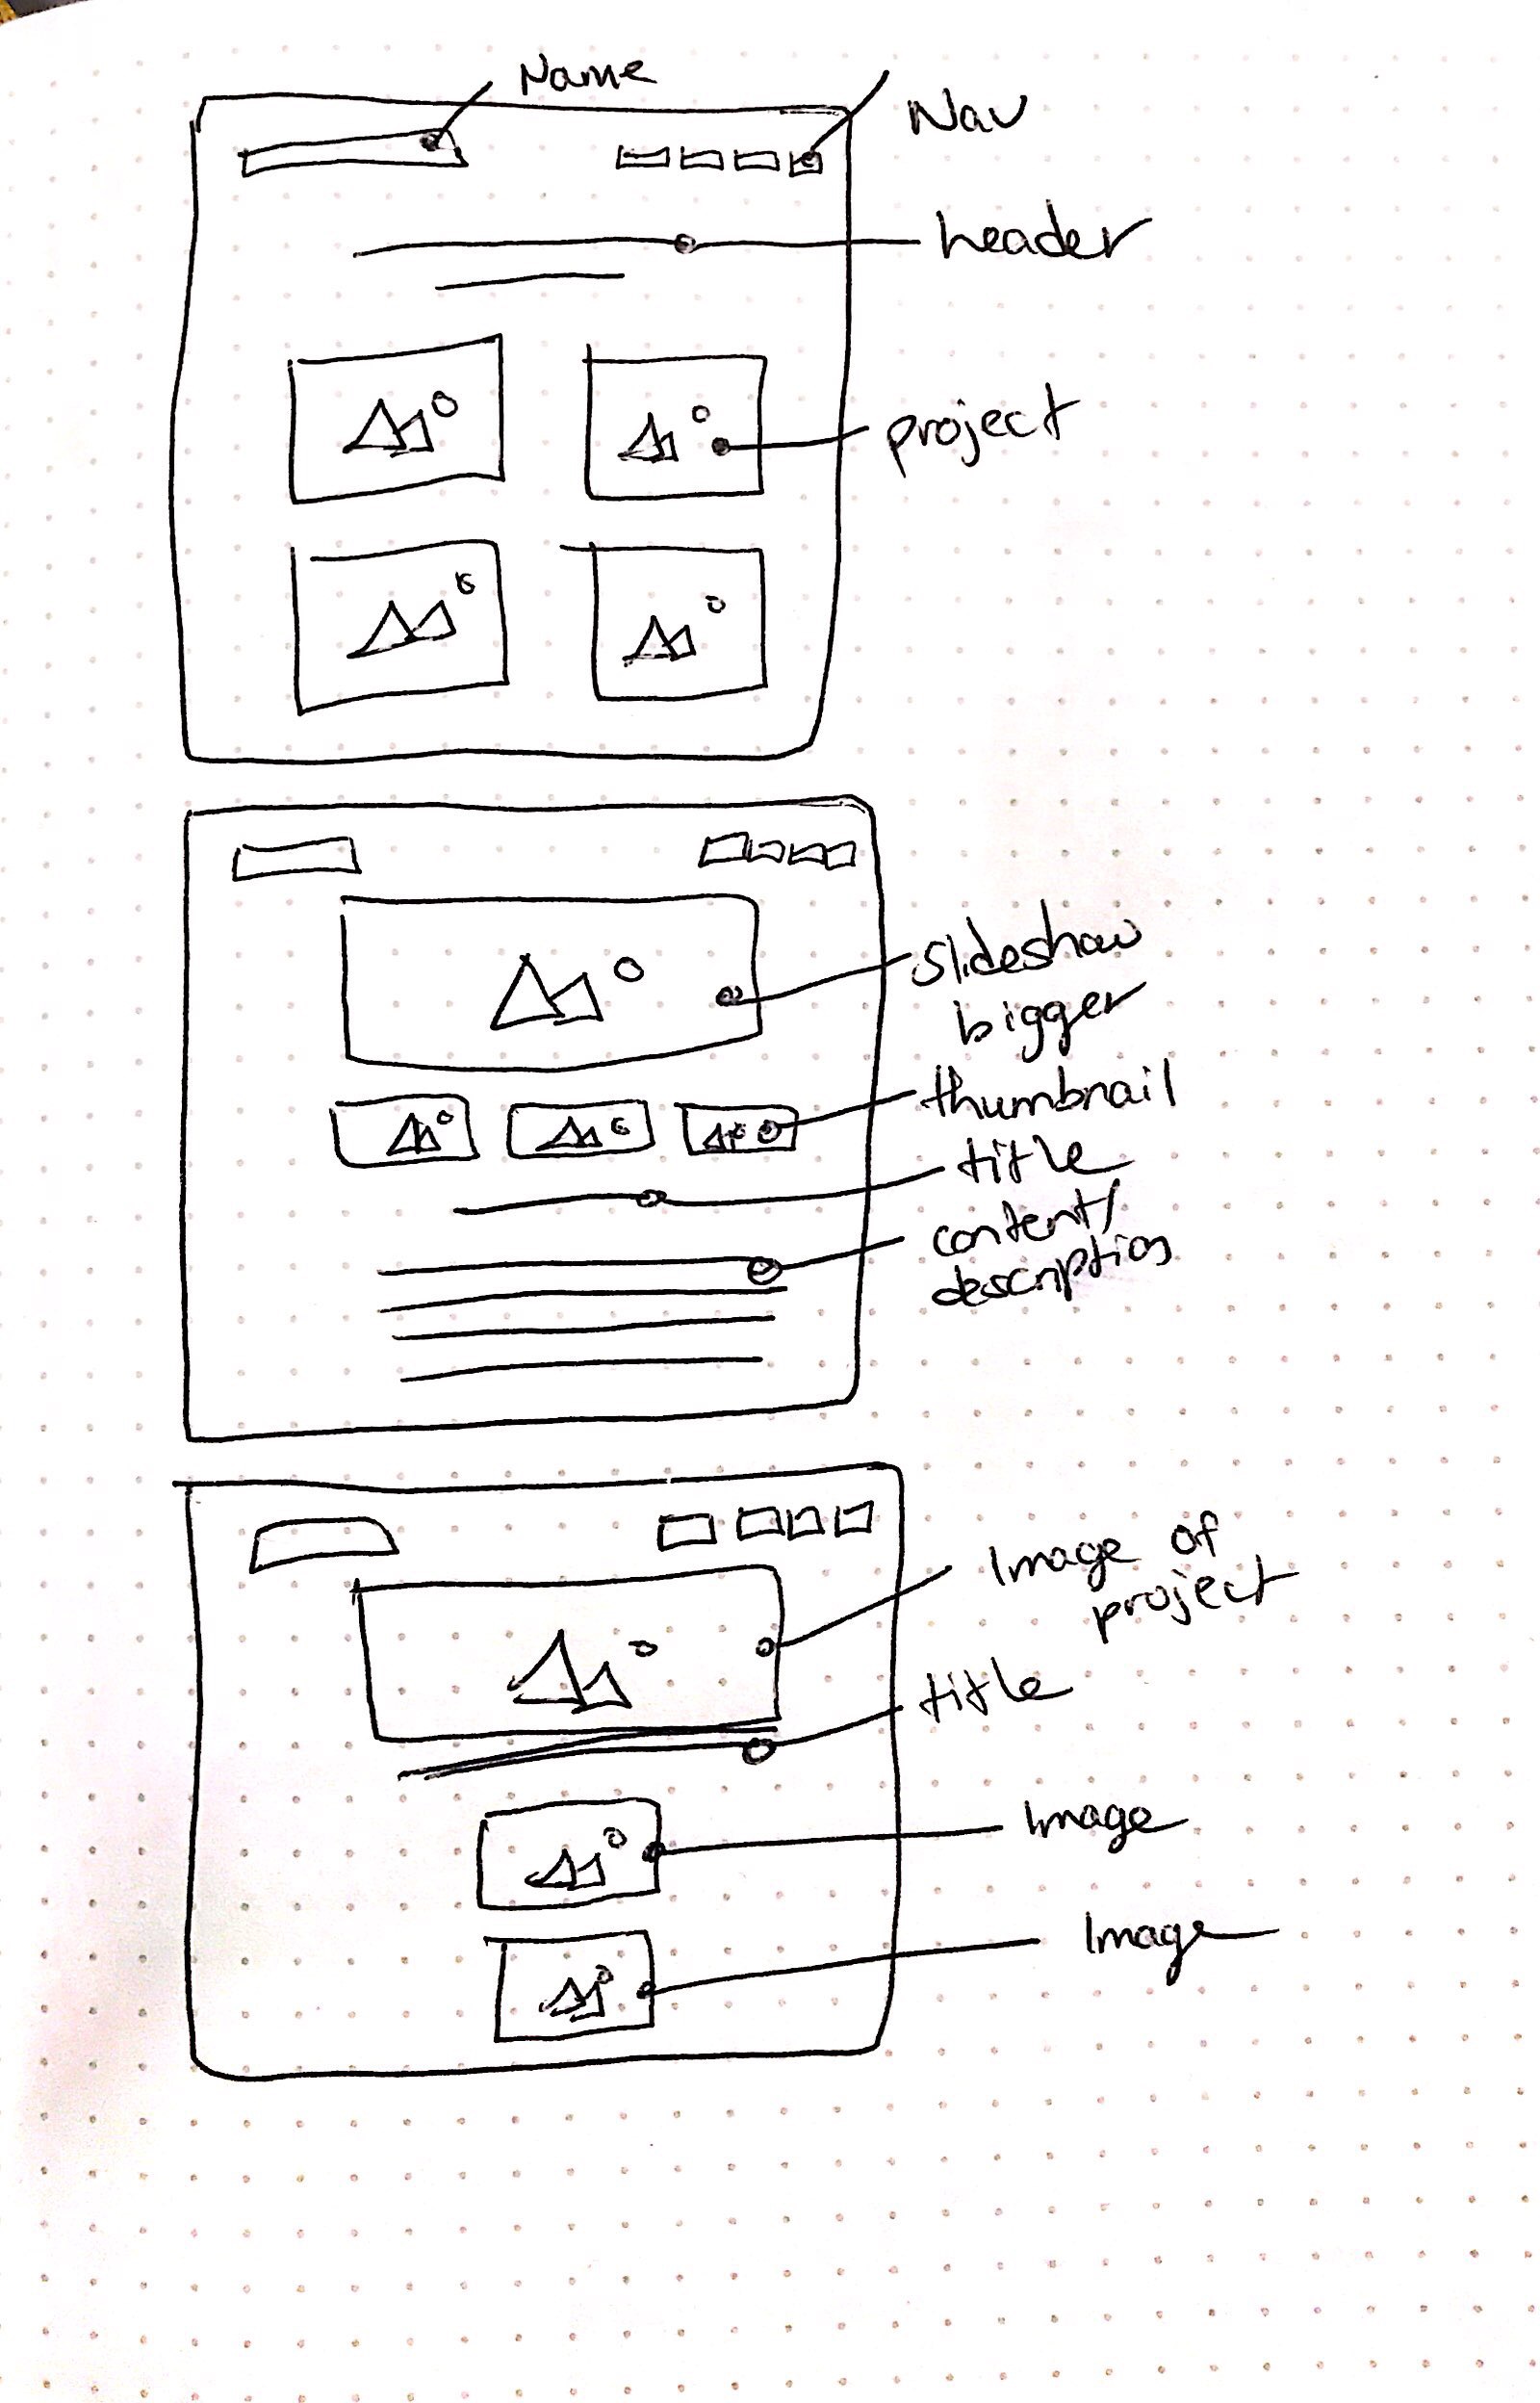 Name
Nav
header
project
slideshow
bigger
thumbnail
title
content/
description
Image of
project
title
Image
Image